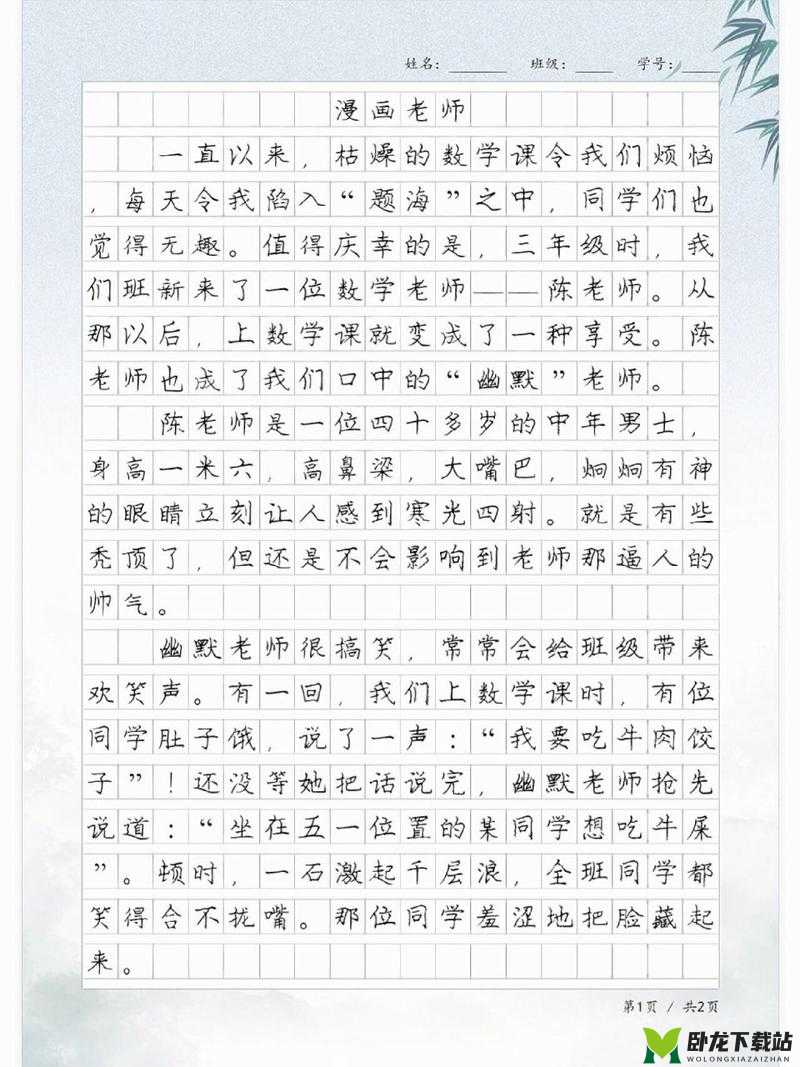 姓名：______ 班级：____ 学号：____
漫画老师
一直以来，枯燥的数学课令我们烦恼
，每天令我陷入“题海”之中，同学们也
觉得无趣。值得庆幸的是，三年级时，我
们班新来了一位数学老师——陈老师。从
那以后，上数学课就变成了一种享受。陈
老师也成了我们口中的“幽默”老师。
陈老师是一位四十多岁的中年男士，
身高一米六，高鼻梁，大嘴巴，炯炯有神
的眼睛立刻让人感到寒光四射。就是有些
秃顶了，但还是不会影响到老师那逼人的
帅气。
幽默老师很搞笑，常常会给班级带来
欢笑声。有一回，我们上数学课时，有位
同学肚子饿，说了一声：“我要吃牛肉饺
子”！还没等她把话说完，幽默老师抢先
说道：“坐在五一位置的某同学想吃牛屎
”。顿时，一石激起千层浪，全班同学都
笑得合不拢嘴。那位同学羞涩地把脸藏起
来。
第1页 / 共2页
卧龙下载站
WOLONGXIAZAIZHAN